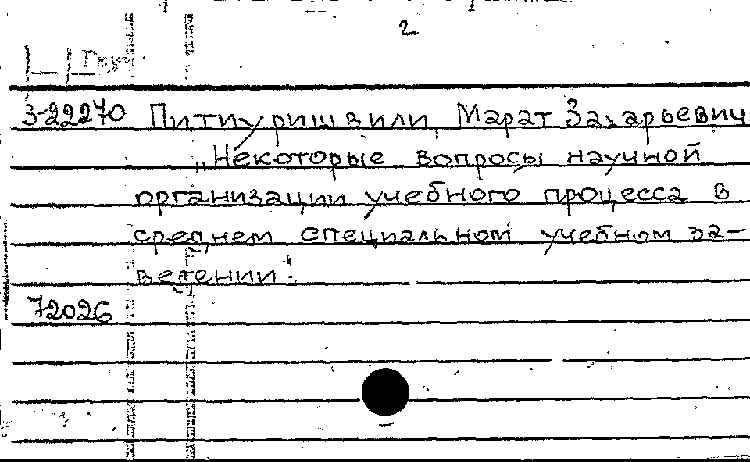 2
3-22270 Питиуришвили, Марат Захарьевич
„Некоторые вопросы научной
организации учебного процесса в
среднем специальном учебном за-
ведении".
72026